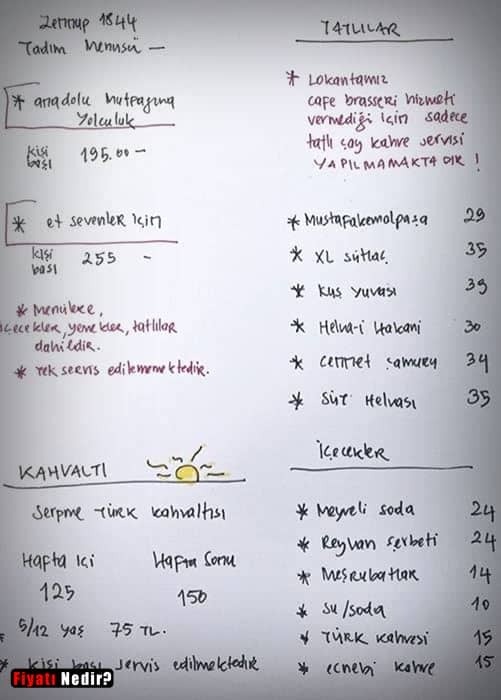 Zennup 1844
Tadım Menüsü —
* anadolu mutfağına
yolculuk
kişi
başı 195.00 —
* et sevenler için
kişi
bası 255 —
* Menülere,
içecekler, yemekler, tatlılar
dahildir.
* Tek servis edilememektedir.
KAHVALTI
Serpme TÜRK kahvaltısı
Hafta içi Hafta Sonu
125 150
5/12 yaş 75 TL.
* kişi başı servis edilmektedir
Fiyatı Nedir?
TATLILAR
* Lokantamız
cafe brasseri hizmeti
vermediği için sadece
tatlı çay kahve servisi
YAPILMAMAKTADIR !
* Mustafakemalpaşa 29
* XL sütlaç 35
* Kuş yuvası 35
* Helva-i Hakani 30
* cennet çamuru 34
* Süt Helvası 35
İçecekler
* Meyveli soda 24
* Reyhan şerbeti 24
* Meşrubatlar 14
* su/soda 10
* TÜRK kahvesi 15
* ecnebi kahve 15